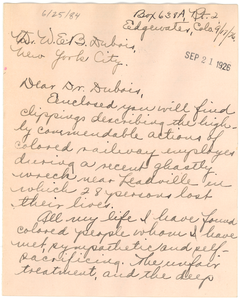 6/25/34
Box 638A, Rt. 2
Edgewater, Colo.
SEP 21 1926
Dr. W.E.B. Dubois,
New York City.
Dear Dr. Dubois:
Enclosed you will find
clippings describing the high-
ly commendable actions of
colored railway employes
during a recent ghastly
wreck near Leadville in
which 28 persons lost
their lives.
All my life I have found
colored people whom I have
met, sympathetic and self-
sacrificing. The unfair
treatment, and the deep